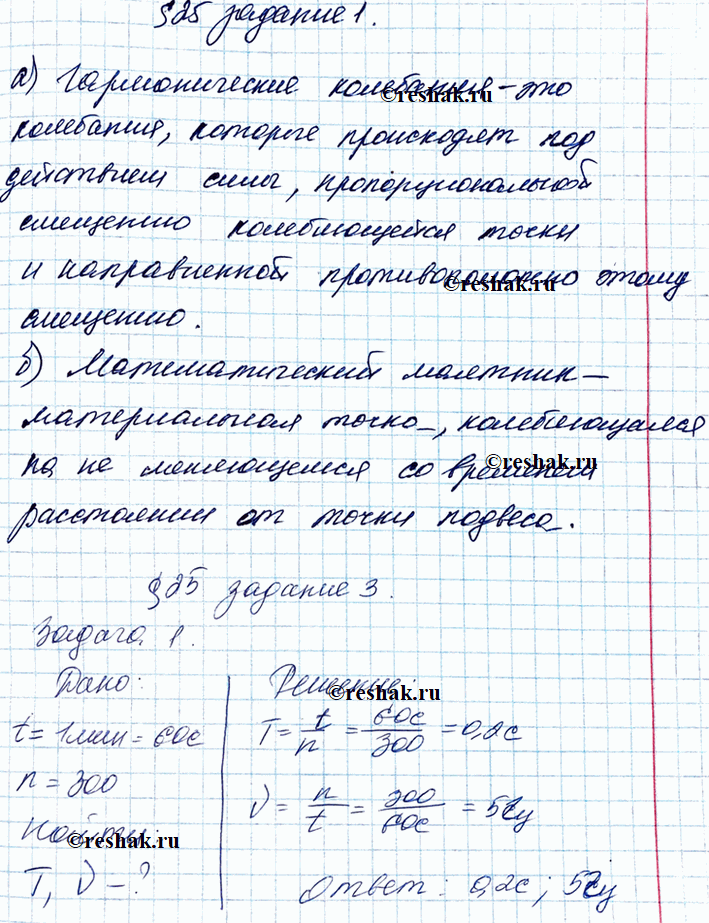 §25 задание 1.
а) Гармонические колебания – это
колебания, которые происходят под
действием силы, пропорциональной
смещению колеблющейся точки
и направленной противоположно этому
смещению.
б) Математический маятник –
материальная точка, колеблющаяся
на не меняющемся со временем
расстоянии от точки подвеса.
§25 задание 3.
Задача 1.
Дано:
t = 1 мин = 60с
n = 300
Найти:
T, ν – ?
Решение:
T = t/n = 60с/300 = 0,2с
ν = n/t = 300/60с = 5Гц
Ответ: 0,2с; 5Гц
©reshak.ru
©reshak.ru
©reshak.ru
©reshak.ru
©reshak.ru